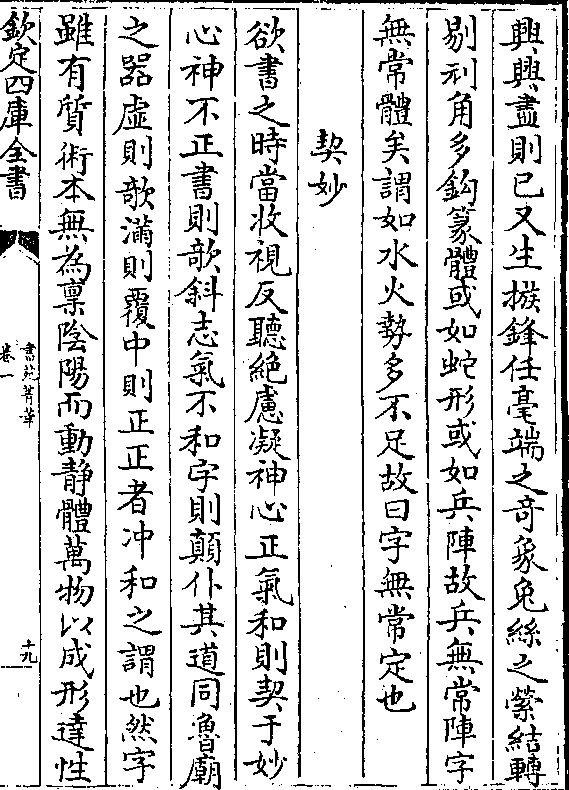 興興盡則已又生㨞鋒任毫端之奇象兔絲之縈結轉
剔利角多鈎篆體或如蛇形或如兵陣故兵無常陣字
無常體矣謂如水火勢多不足故曰字無常定也
契妙
欲書之時當收視反聽絶慮凝神心正氣和則契于妙
心神不正書則欹斜志氣不和字則顛仆其道同魯廟
之器虛則欹滿則覆中則正正者冲和之謂也然字
雖有質術本無為禀陰陽而動静體萬物以成形達性
欽定四庫全書
書苑菁華
卷一
十九